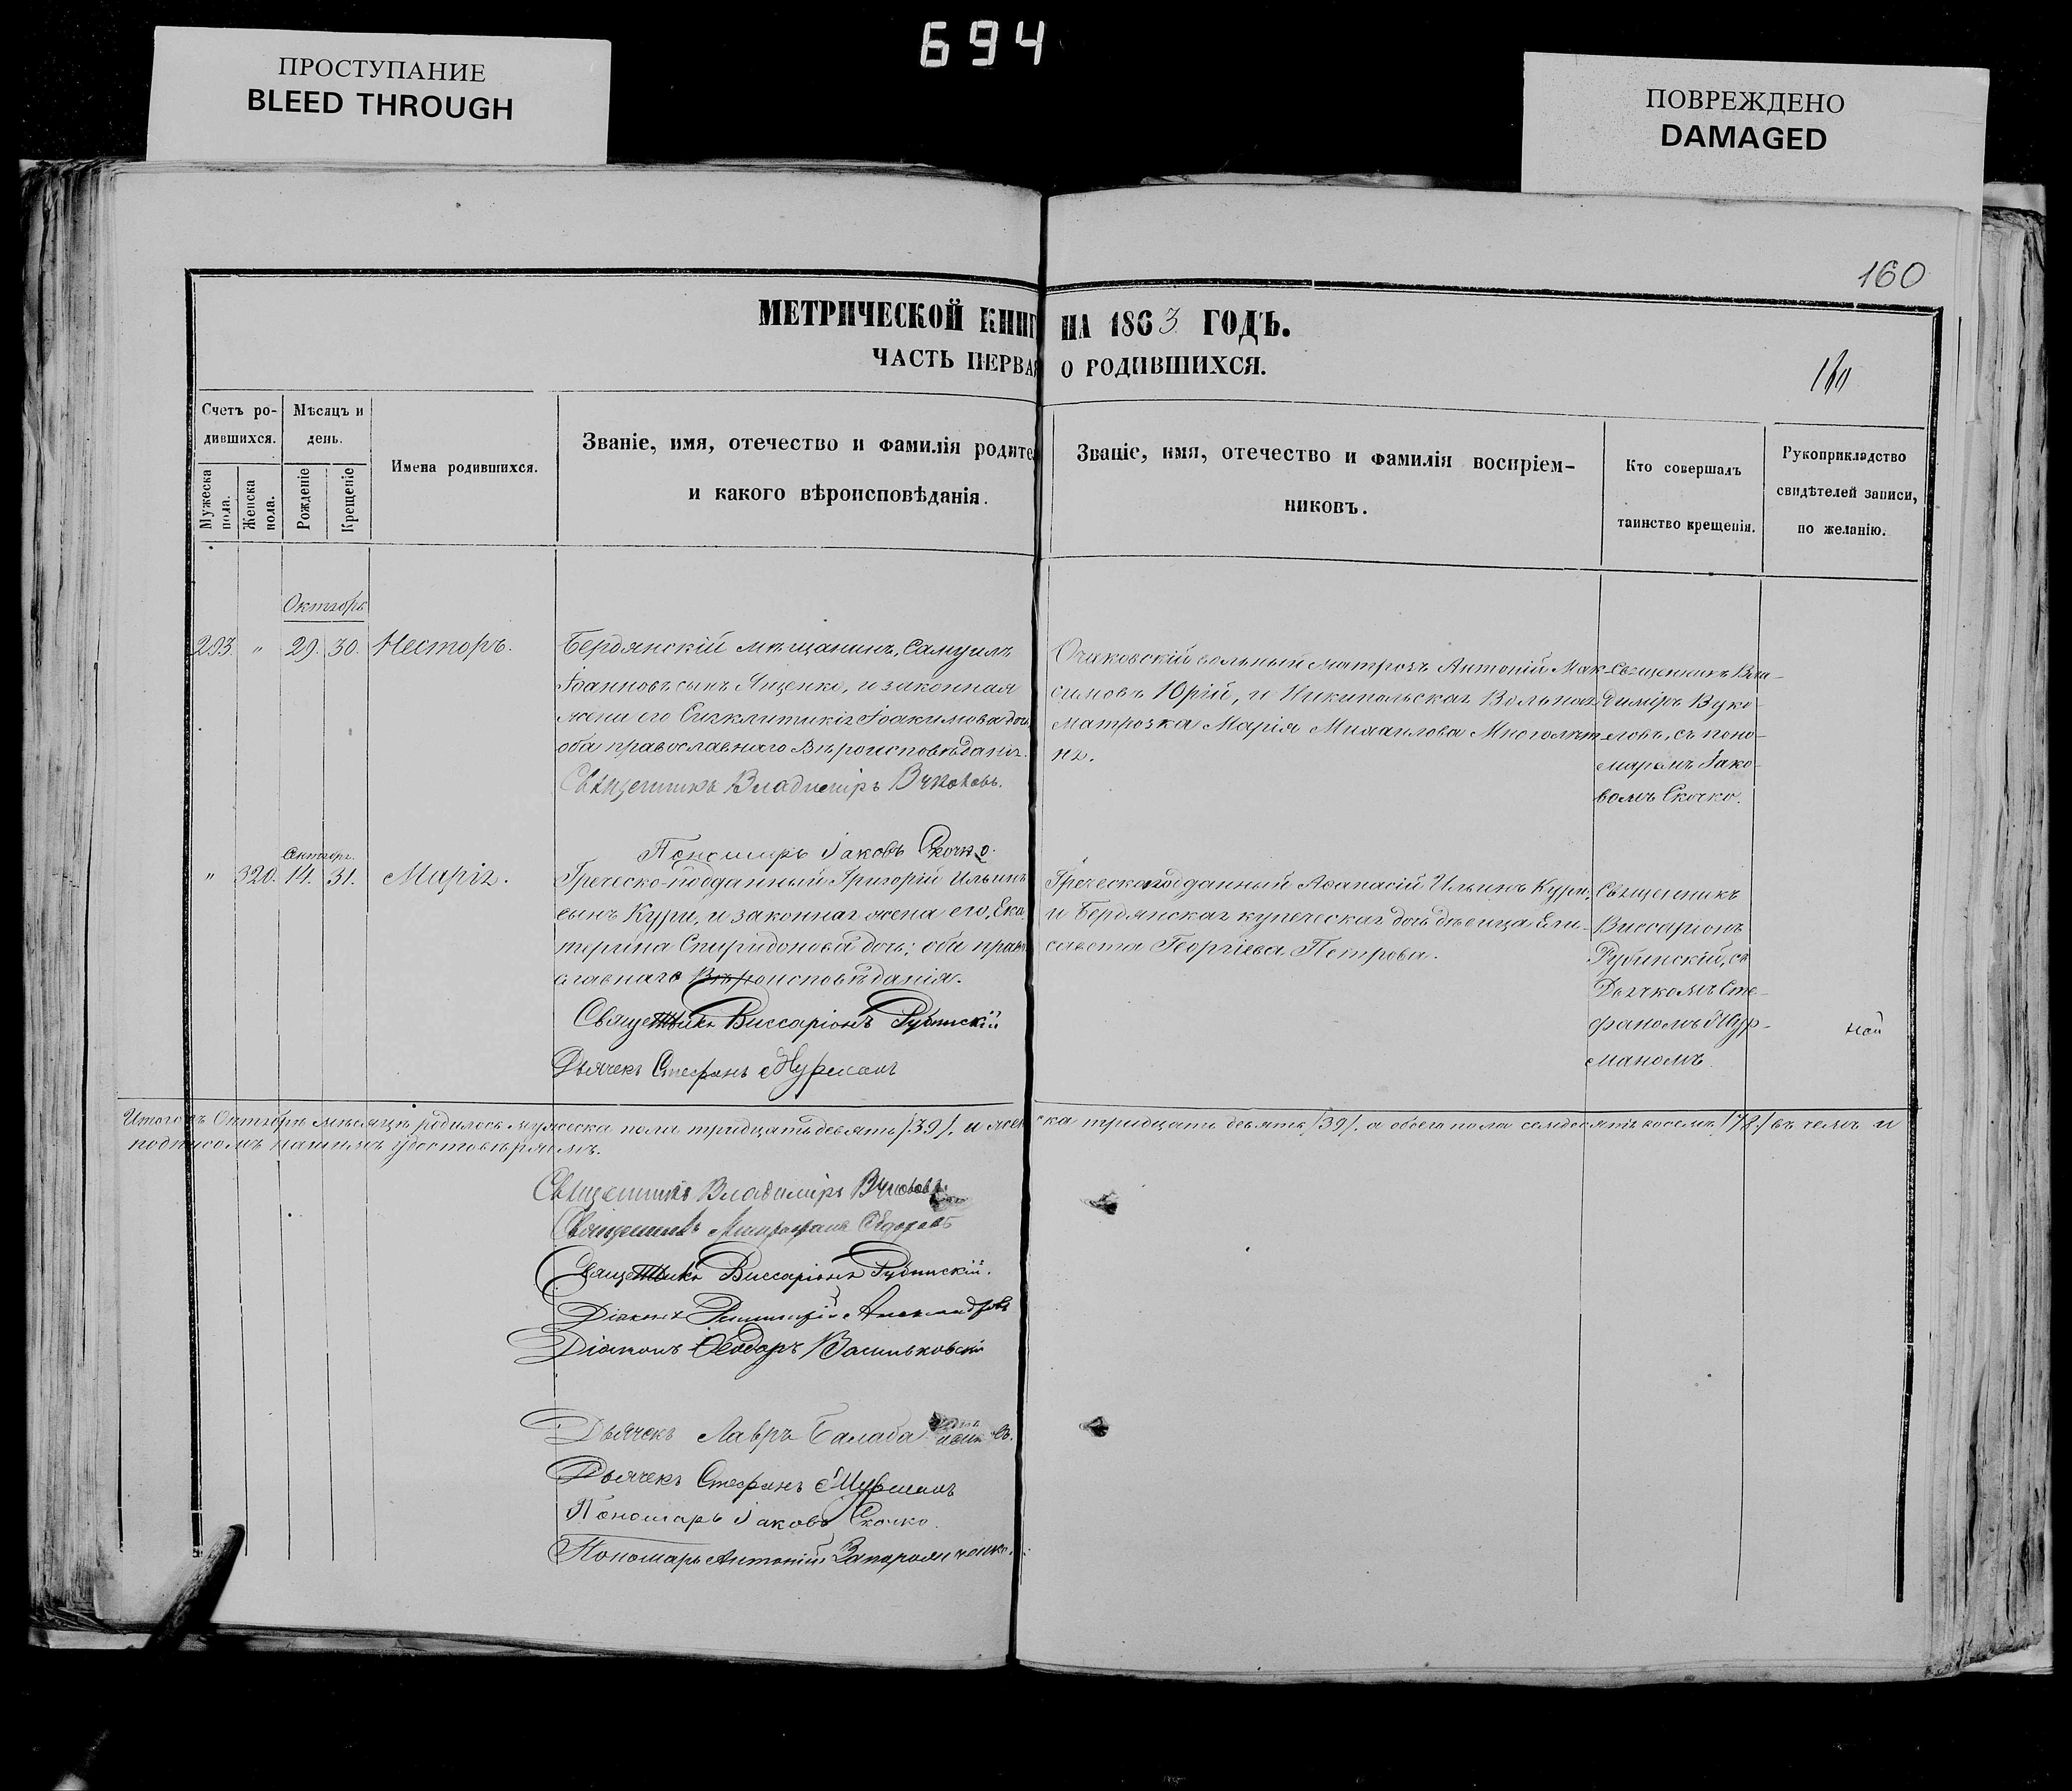 694
ПРОСТУПАНИЕ
BLEED THROUGH
ПОВРЕЖДЕНО
DAMAGED
160
МЕТРИЧЕСКОЙ КНИГ НА 1863 ГОДЪ.
ЧАСТЬ ПЕРВАЯ О РОДИВШИХСЯ.
160
Счетъ ро-
дившихся.
Мужеска
пола.
Женска
пола.
Мѣсяцъ и
день.
Рожденіе
Крещеніе
Имена родившихся.
Званіе, имя, отечество и фамилія родите
и какого вѣроисповѣданія.
Званіе, имя, отечество и фамилія воспріем-
никовъ.
Кто совершалъ
таинство крещенія.
Рукоприкладство
свидѣтелей записи,
по желанію.
Октябрь
293. " 29. 30. Несторъ.
Бердянскій мѣщанинъ, Самуилъ
Іоанновъ сынъ Яценко, и законная
жена его Сигклитикія Іоакимова доч
оба православнаго Вѣроисповѣданія.
Священникъ Владиміръ Вуколовъ.
Пономарь Іаковъ Скочко.
Очаковскій вольный матрозъ Антоній Мак-
симовъ Юрій, и Никипольская Вольная
матрозка Марія Михаилова Многолѣт-
нѣ.
Священникъ Вла-
диміръ Вуко-
ловъ, съ поно-
маремъ Іако-
вомъ Скочко.
Октябрь.
" 320. 14. 31. Марія.
Греческо-подданный Григорій Ильинъ
сынъ Кури, и законная жена его, Ека
терина Спиридонова дочь; оба право
славнаго Вѣроисповѣданія.
Священникъ Виссаріонъ Рубинскій
Дьячекъ Стефанъ Мурманъ
Греческоподданный Аѳанасій Ильинъ Кури,
и Бердянская купеческая дочь дѣвица Ели-
савета Георгіева Петрова.
Священникъ
Виссаріонъ
Рубинскій, съ
Дьячкомъ Сте-
фаномъ Мур-
маномъ.
Итого въ Октябрѣ мѣсяцѣ родилось мужеска пола тридцать девять /39/, и женска тридцать девять /39/. а обоего пола семдесять восемь /78./ въ чемъ и
подписомъ нашимъ удостовѣряемъ.
Священникъ Владиміръ Вуколовъ.
Священникъ Митрофанъ
Священникъ Виссаріонъ Рубинскій.
Діаконъ Александровъ
Діаконъ Ѳеодоръ Васильковскій
Дьячекъ Лавръ
Дьячекъ Стефанъ Мурманъ
Пономарь Іаковъ Скочко.
Пономарь Антоній